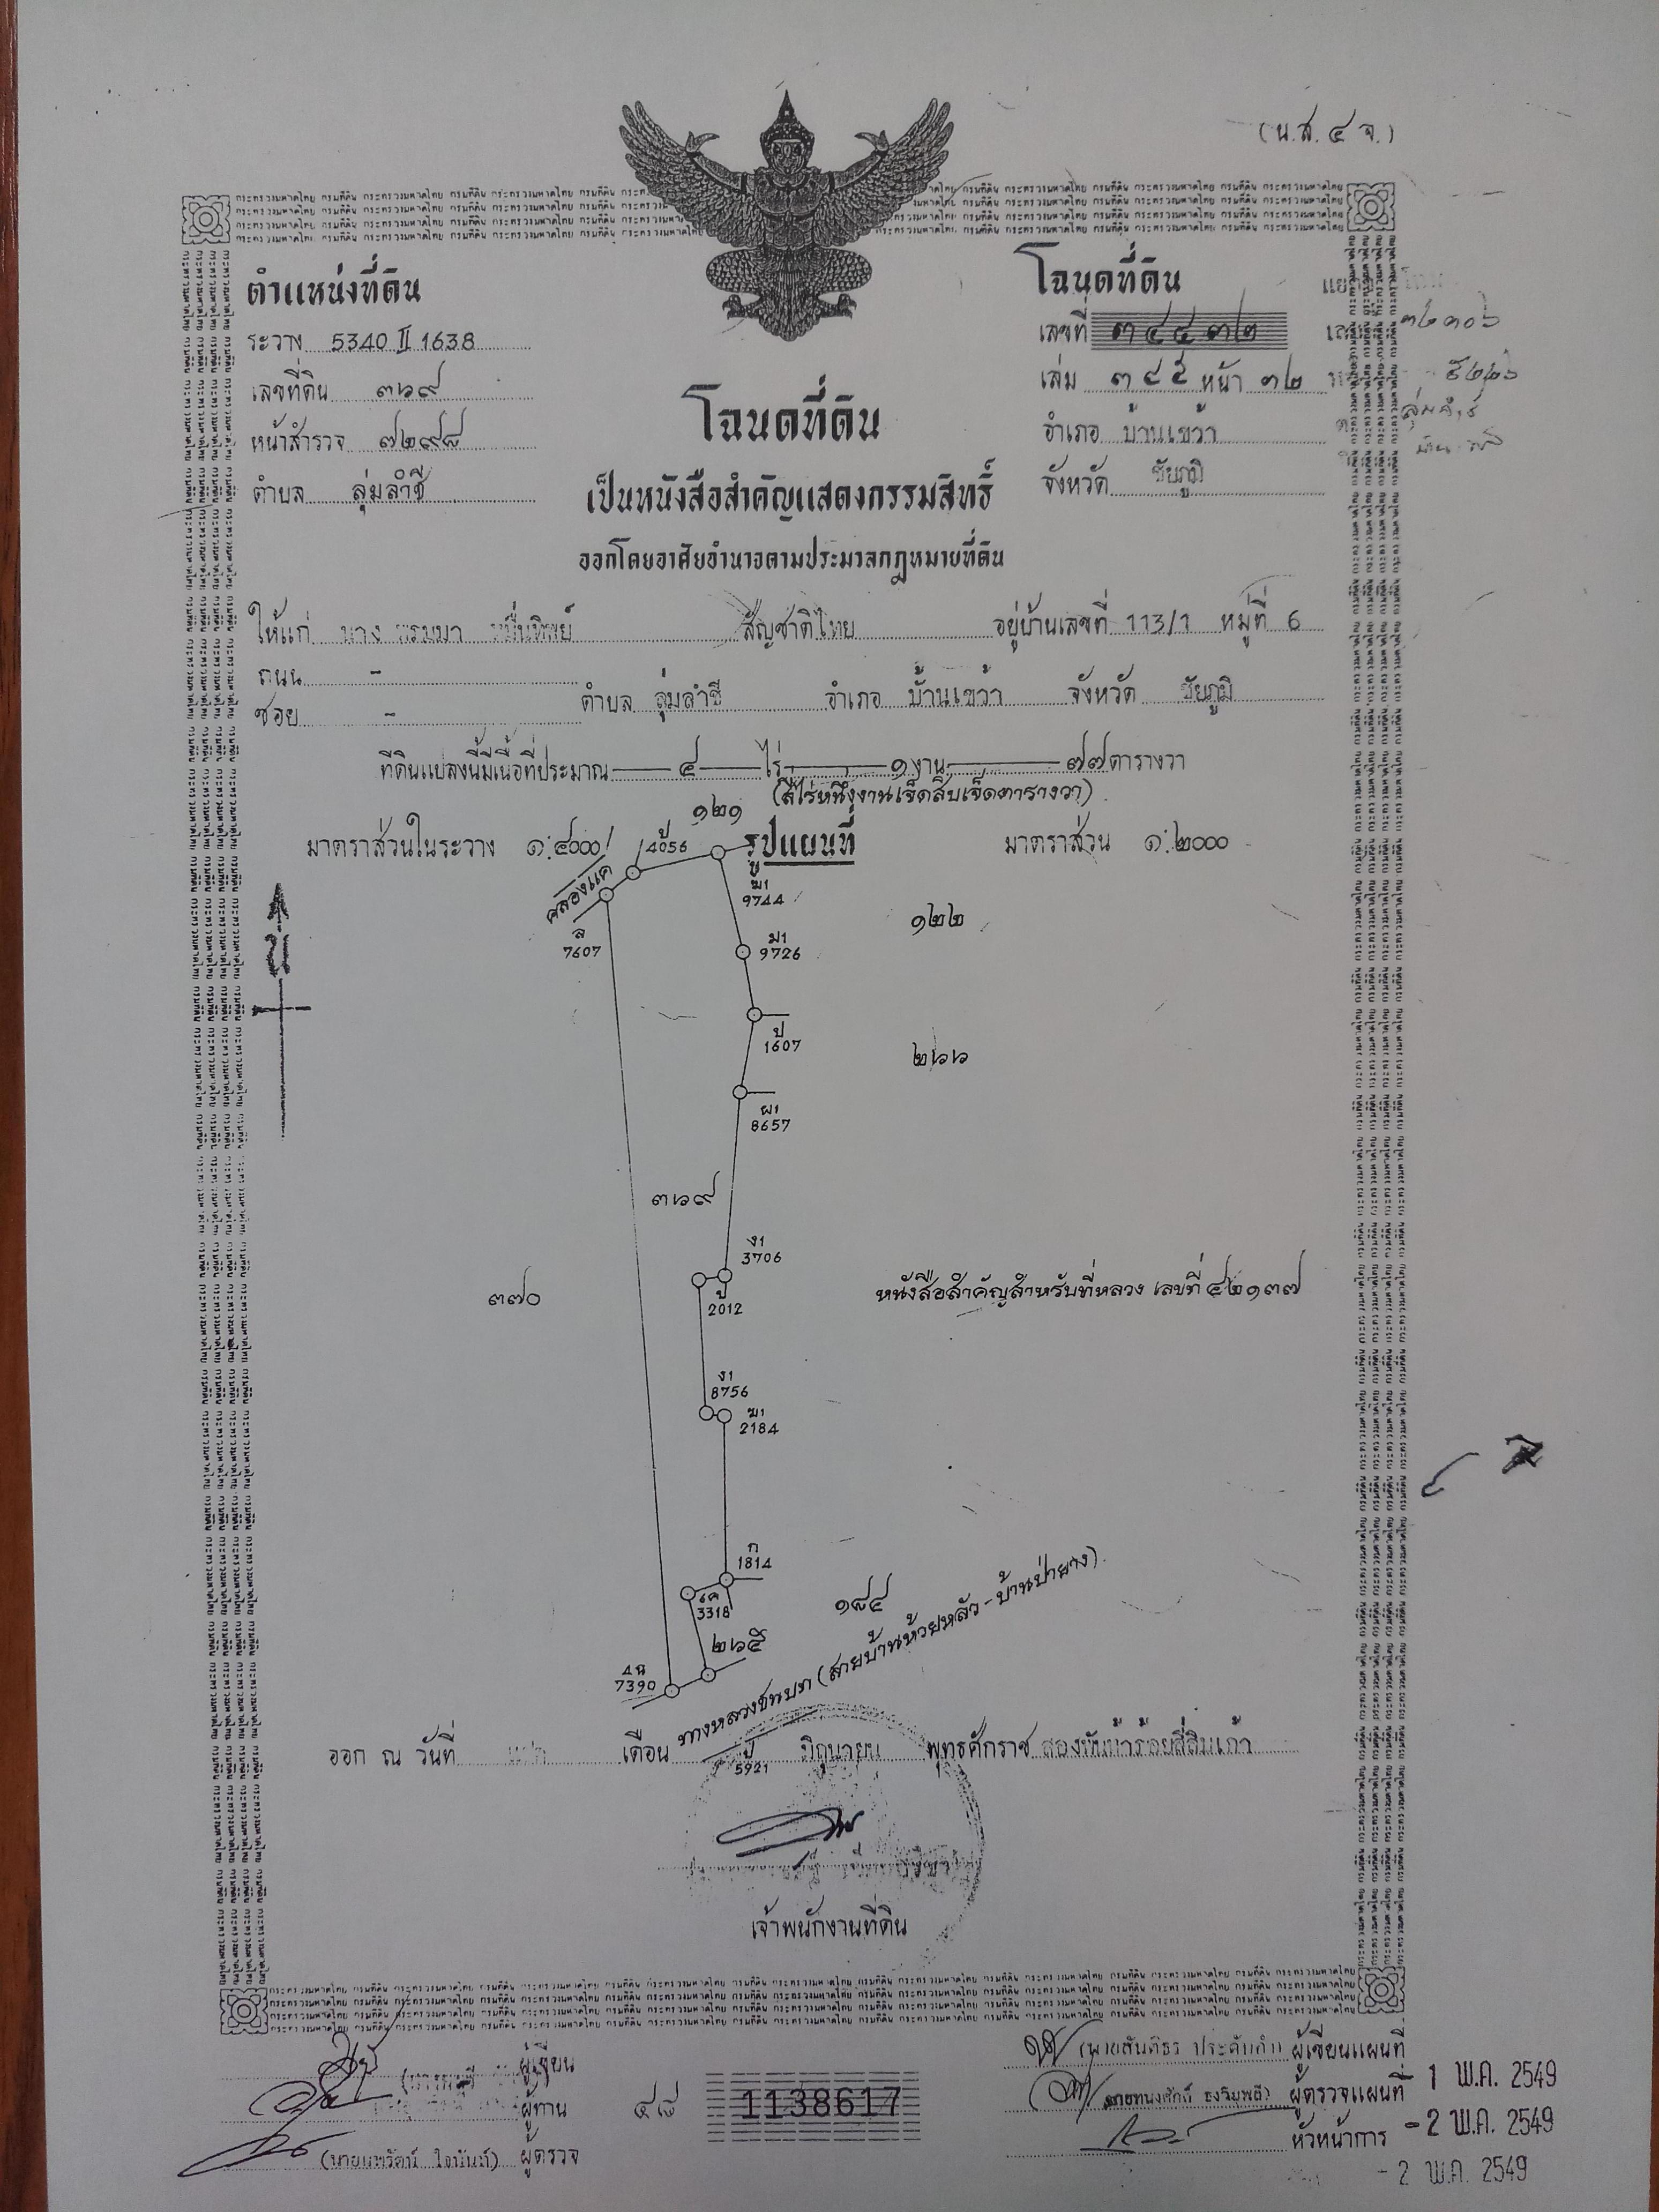 (น.ส. ๔ จ.)
ตำแหน่งที่ดิน
ระวาง 5340 II 1638
เลขที่ดิน ๓๖๙
หน้าสำรวจ ๗๒๙๘
ตำบล ลุ่มลำชี
โฉนดที่ดิน
เลขที่ ๓๔๔๓๒
เล่ม ๓๔๕ หน้า ๓๒
อำเภอ บ้านเขว้า
จังหวัด ชัยภูมิ
โฉนดที่ดิน
เป็นหนังสือสำคัญแสดงกรรมสิทธิ์
ออกโดยอาศัยอำนาจตามประมวลกฎหมายที่ดิน
ให้แก่ นาง พรมมา หมื่นทิพย์ สัญชาติไทย อยู่บ้านเลขที่ 113/1 หมู่ที่ 6
ถนน -
ซอย - ตำบล ลุ่มลำชี อำเภอ บ้านเขว้า จังหวัด ชัยภูมิ
ที่ดินแปลงนี้มีเนื้อที่ประมาณ ๔ ไร่ ๑ งาน ๗๗ ตารางวา
(สี่ไร่หนึ่งงานเจ็ดสิบเจ็ดตารางวา)
๑๒๑
มาตราส่วนในระวาง ๑:๔๐๐๐ รูปแผนที่ มาตราส่วน ๑:๒๐๐๐
4056
คลองแค
ฆ1
9744
ล
7607
๑๒๒
ฆ1
9726
ป
1607
๒๖๖
ผ1
8657
๓๖๙
ง1
3706
๓๗๐
2012
หนังสือสำคัญสำหรับที่หลวง เลขที่ ๔๒๑๓๗
ง1
8756
ฆ1
2184
ก
1814
3318
๑๘๔
๒๖๕
4ฉ
7390
ทางหลวงชนบท (สายบ้านห้วยหลัว - บ้านป่ายาง)
ป
5921
ออก ณ วันที่ เดือน มิถุนายน พุทธศักราช สองพันห้าร้อยสี่สิบเก้า
เจ้าพนักงานที่ดิน
ผู้เขียน
ผู้ทาน
ผู้ตรวจ
๔๘
1138617
ผู้เขียนแผนที่
ผู้ตรวจแผนที่ 1 พ.ค. 2549
หัวหน้าการ - 2 พ.ค. 2549
- 2 พ.ค. 2549